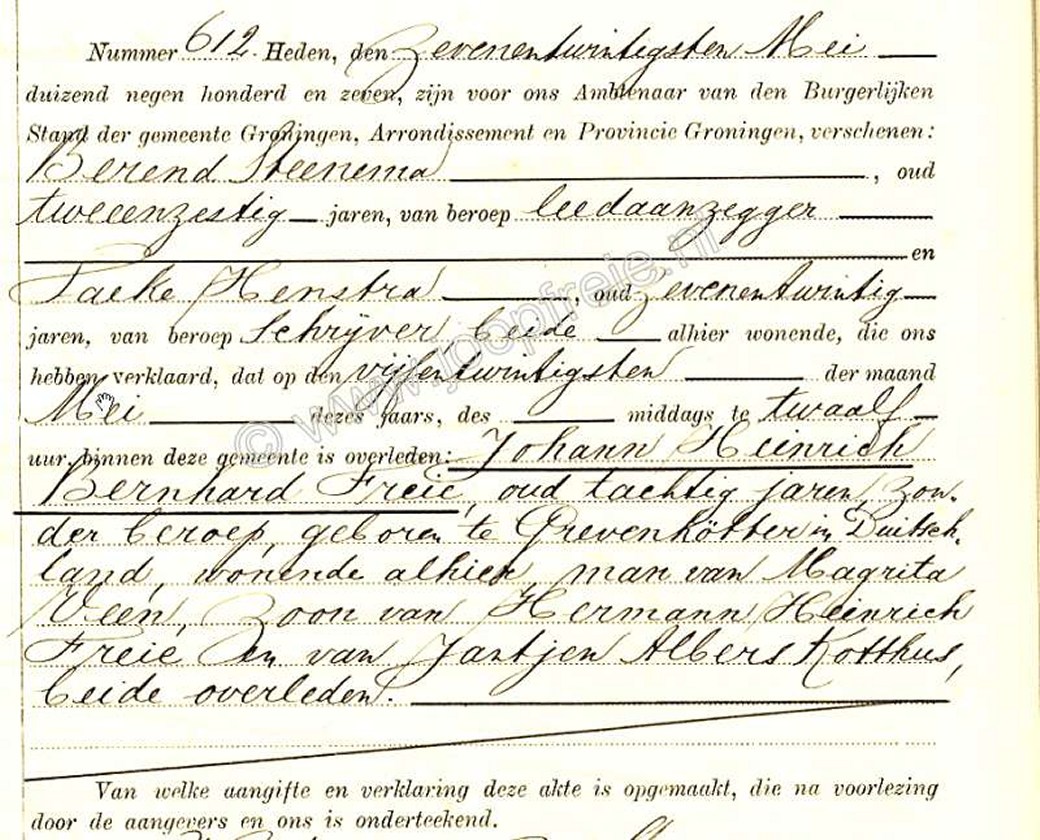 Nummer 612. Heden, den zevenentwintigsten Mei
duizend negen honderd en zeven, zijn voor ons Ambtenaar van den Burgerlijken
Stand der gemeente Groningen, Arrondissement en Provincie Groningen, verschenen:
Berend Steenema, oud
tweeenzestig jaren, van beroep leedaanzegger
en
Taeke Henstra, oud zevenentwintig
jaren, van beroep Schrijver beide alhier wonende, die ons
hebben verklaard, dat op den vijfentwintigsten der maand
Mei dezes jaars, des middags te twaalf
uur, binnen deze gemeente is overleden: Johann Heinrich
Bernhard Freie, oud tachtig jaren, zon-
der beroep, geboren te Grevenkötter in Duitsch-
land, wonende alhier, man van Magrita
Veen, zoon van Hermann Heinrich
Freie en van Jantjen Albers Kotthus,
beide overleden.
Van welke aangifte en verklaring deze akte is opgemaakt, die na voorlezing
door de aangevers en ons is onderteekend.
© www.joopfreie.nl